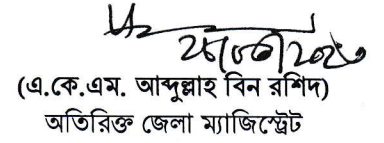 (এ.কে.এম. আব্দুল্লাহ বিন রশিদ)
অতিরিক্ত জেলা ম্যাজিস্ট্রেট